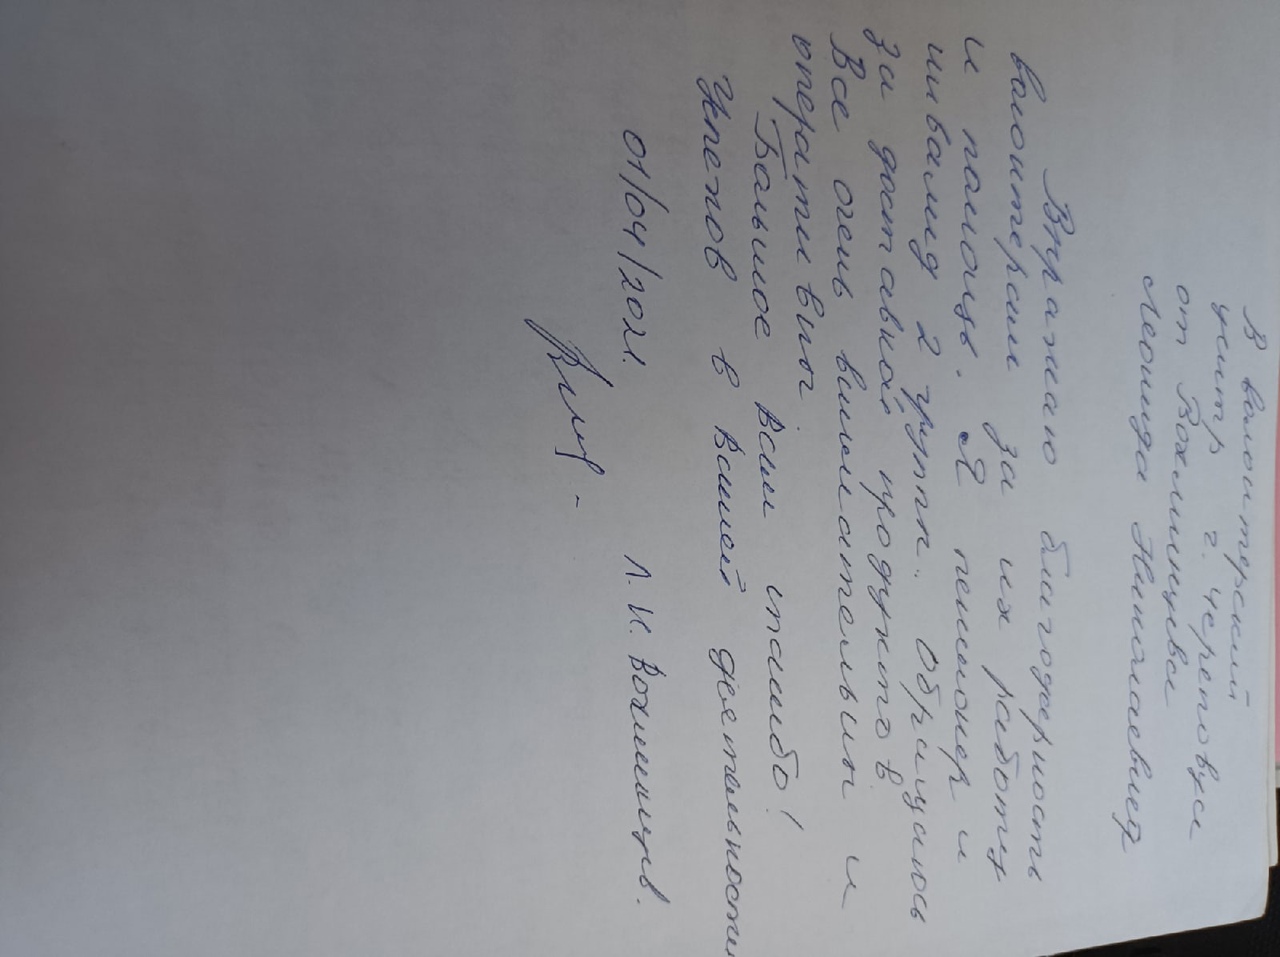 В волонтерский
центр г. Череповца
от Вохминцева
Леонида Николаевича
Выражаю благодарность
волонтерам за их работу
и помощь. Я пенсионер и
инвалид 2 групп.. Обращаюсь
за доставкой продуктов.
Все очень внимательны и
оперативны.
Большое Вам спасибо!
Успехов в Вашей деятельности
01/04/2021. Л.Н. Вохминцев.